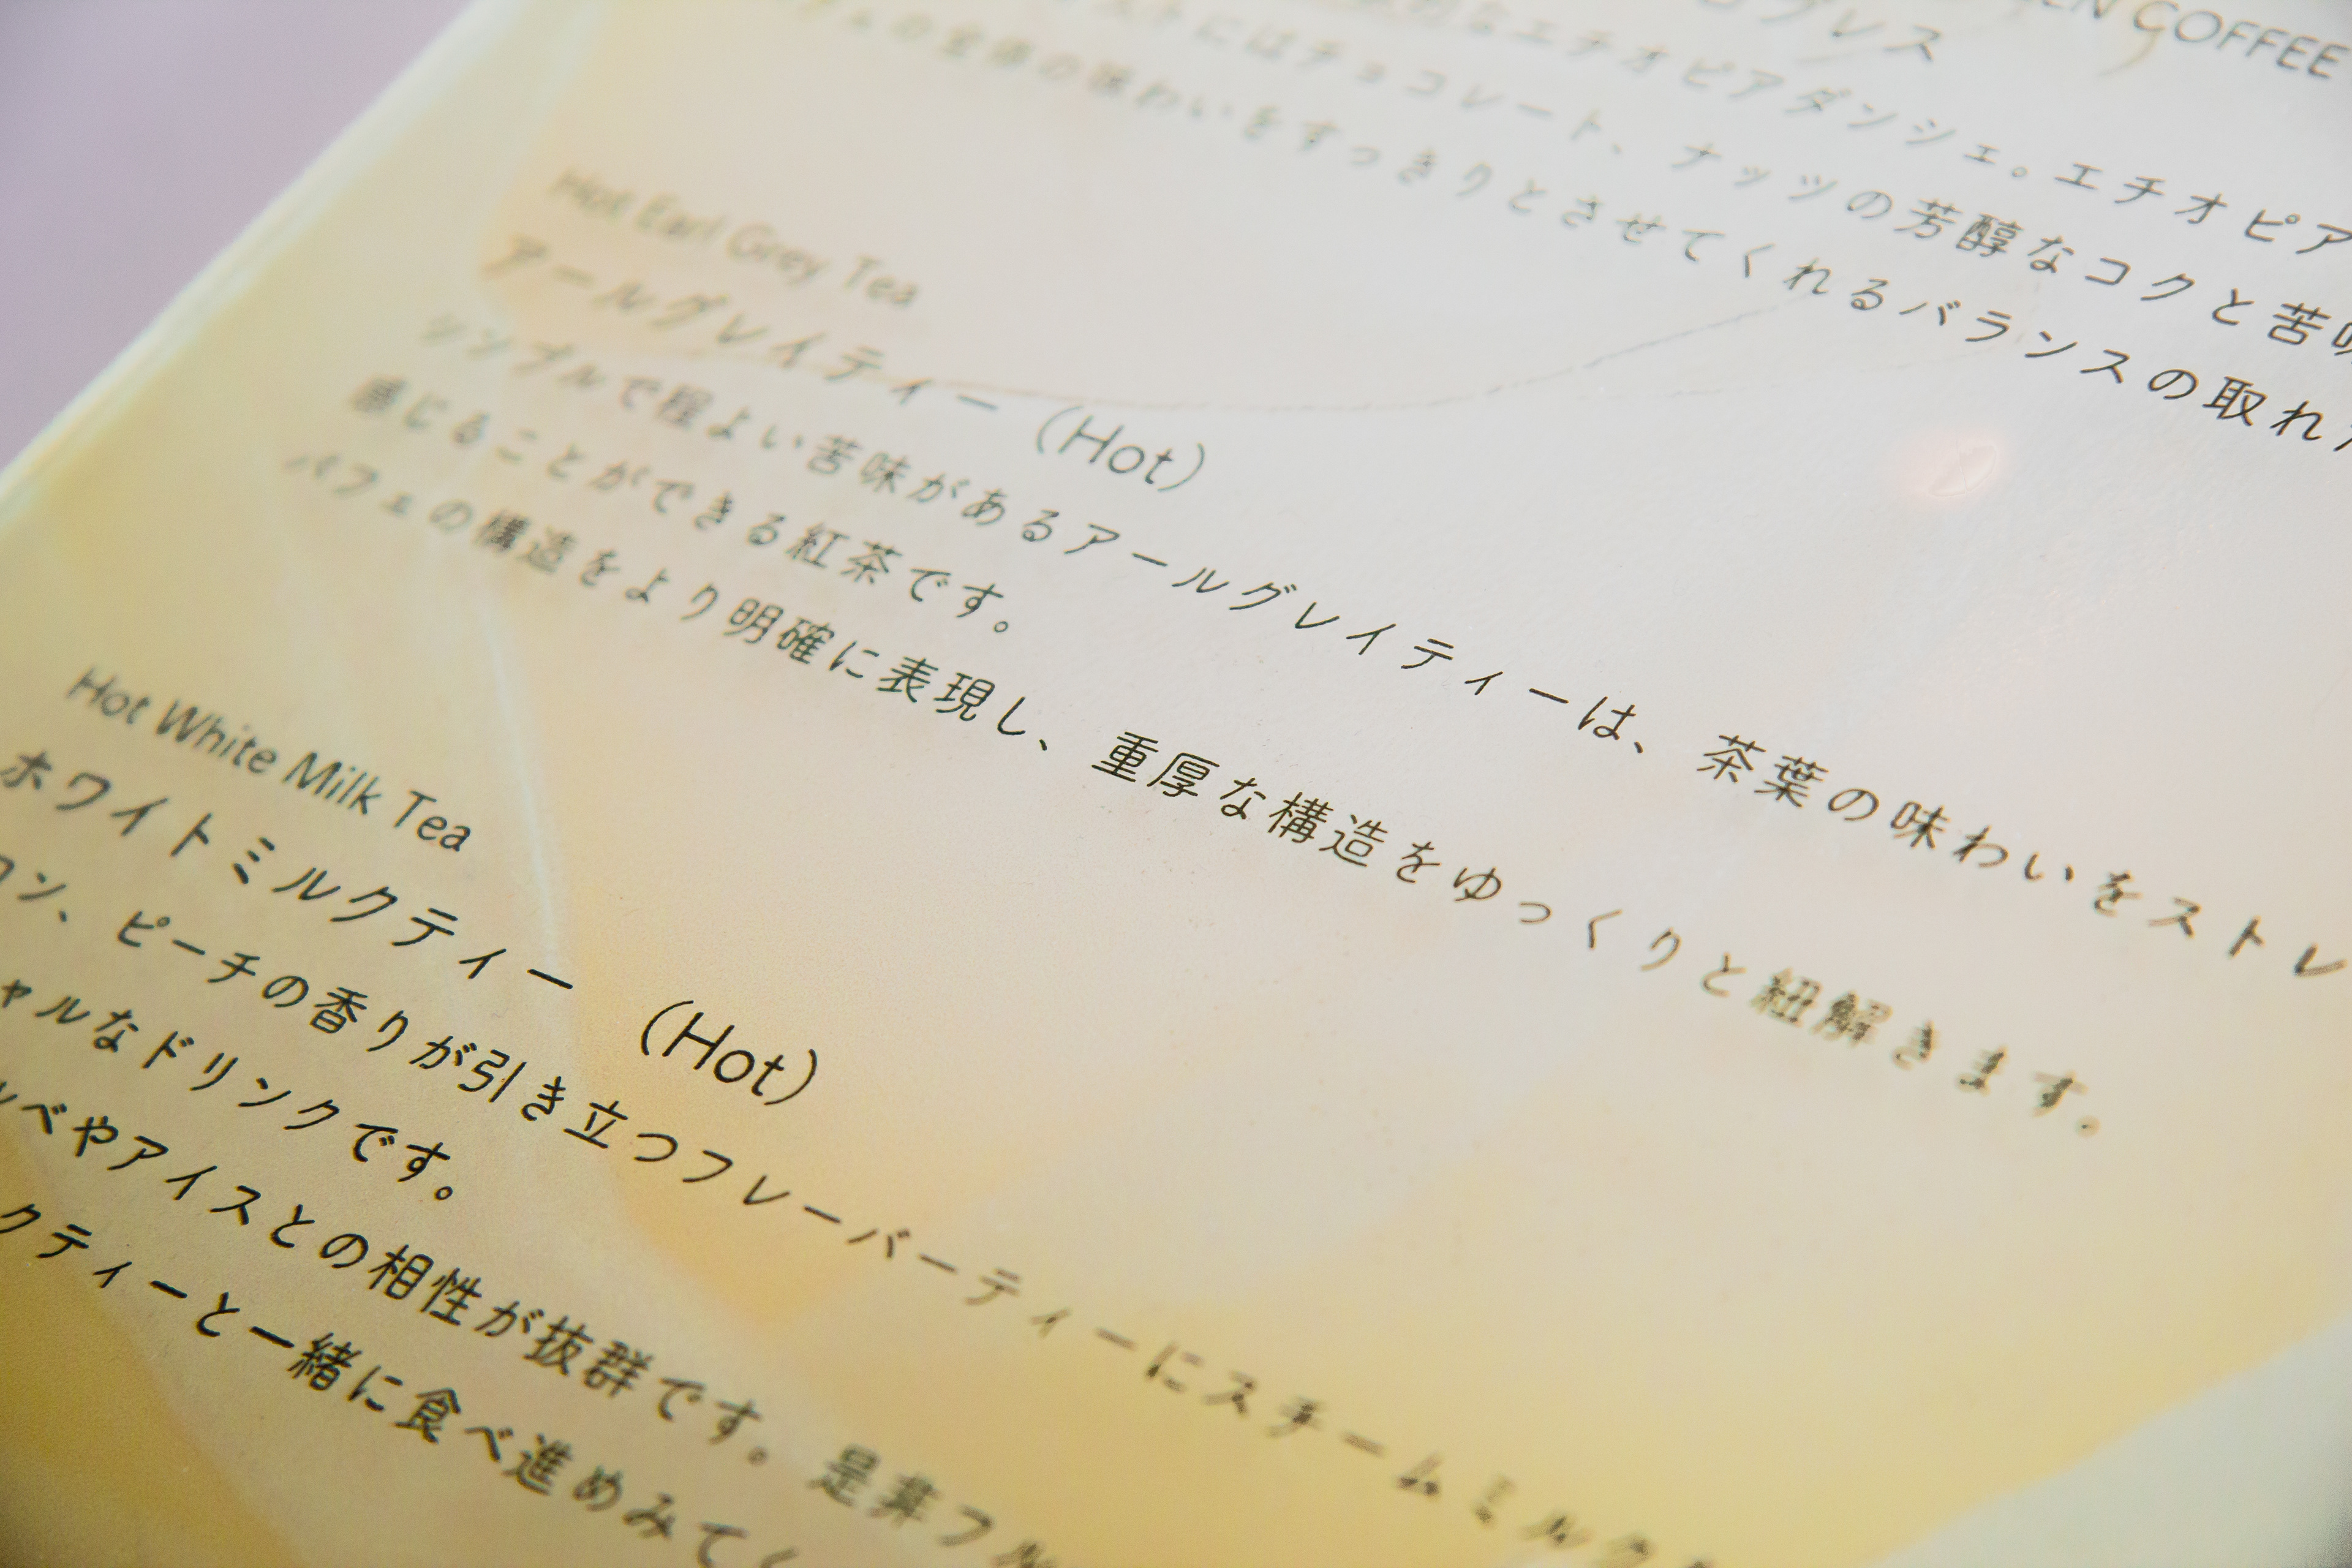 COFFEE
プレス
エチオピアダンシェ。エチオピア
にはチョコレート、ナッツの芳醇なコクと苦味
の味わいをすっきりとさせてくれるバランスの取れた
Hot Earl Grey Tea
アールグレイティー（Hot）
シンプルで程よい苦味があるアールグレイティーは、茶葉の味わいをストレ
感じることができる紅茶です。
パフェの構造をより明確に表現し、重厚な構造をゆっくりと紐解きます。
Hot White Milk Tea
ホワイトミルクティー （Hot）
ン、ピーチの香りが引き立つフレーバーティーにスチームミルク
ャルなドリンクです。
ベやアイスとの相性が抜群です。是非フル
クティーと一緒に食べ進めみてく